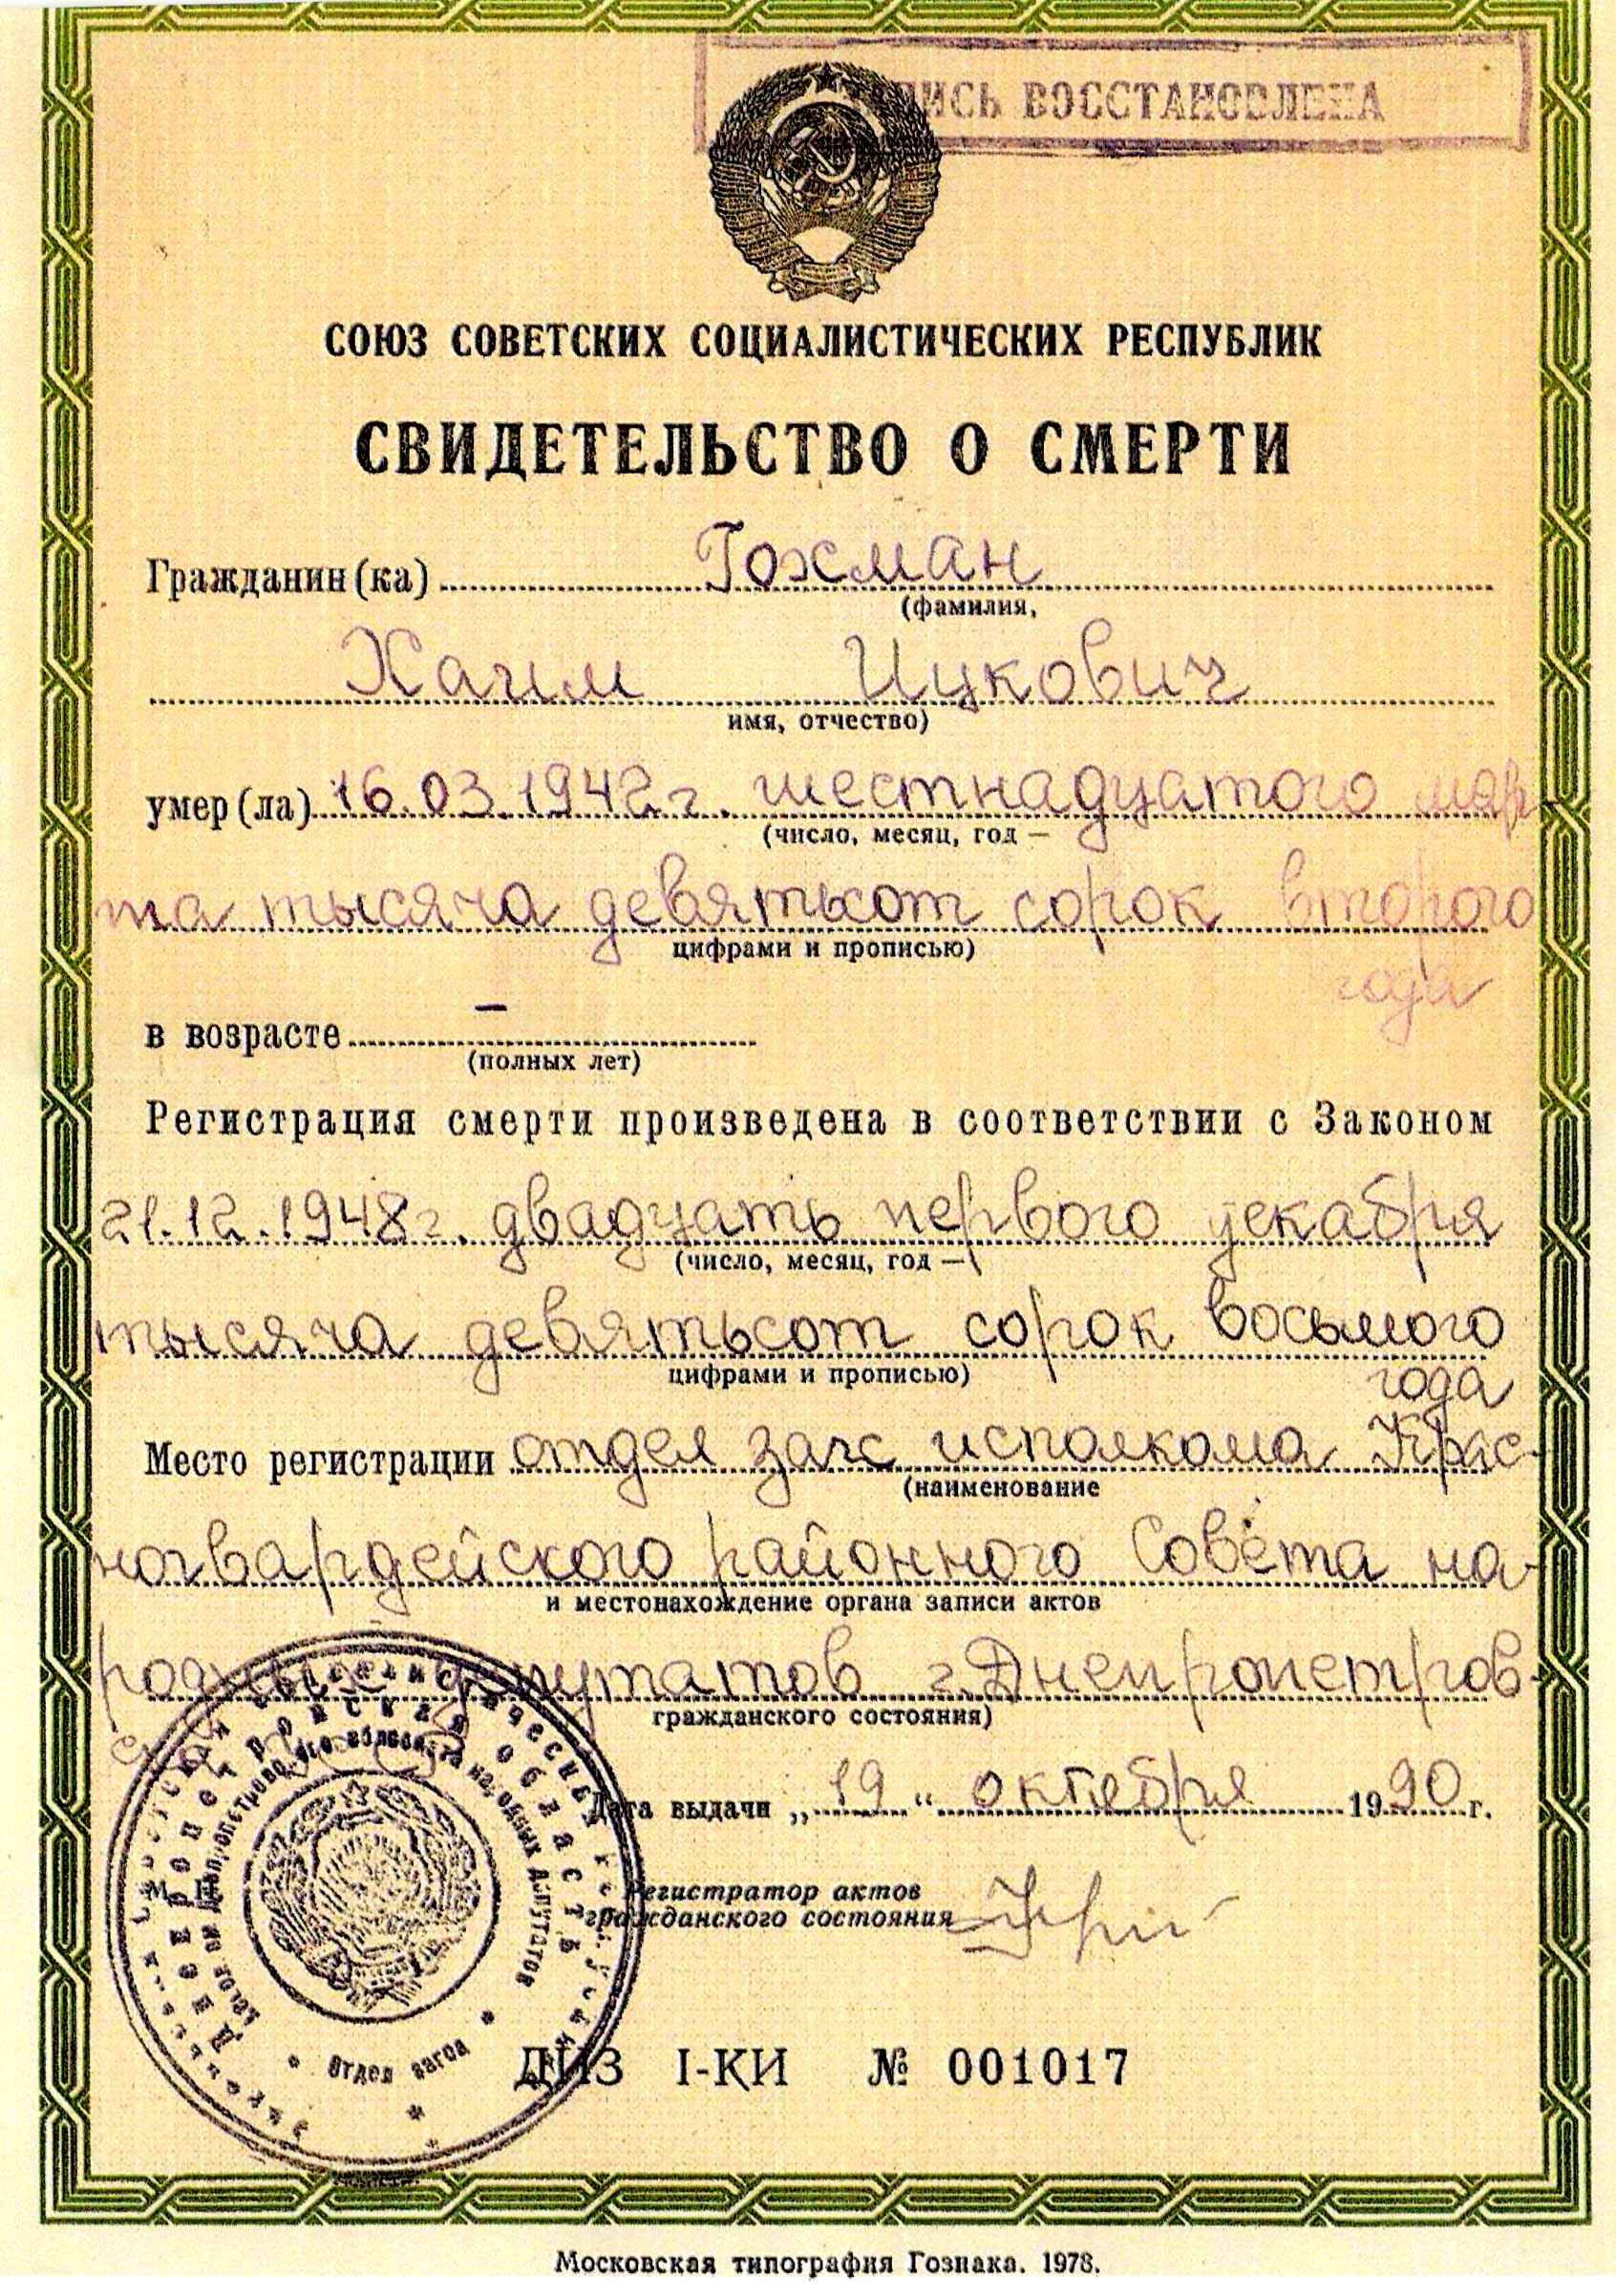 ВОССТАНОВЛЕНА
СОЮЗ СОВЕТСКИХ СОЦИАЛИСТИЧЕСКИХ РЕСПУБЛИК
СВИДЕТЕЛЬСТВО О СМЕРТИ
Гражданин(ка) Гохман
(фамилия,
Хаим Ицкович
имя, отчество)
умер(ла) 16.03.1942г. шестнадцатого мар-
(число, месяц, год —
та тысяча девятьсот сорок второго
цифрами и прописью)
года
в возрасте –
(полных лет)
Регистрация смерти произведена в соответствии с Законом
21.12.1948г. двадцать первого декабря
(число, месяц, год —
тысяча девятьсот сорок восьмого
цифрами и прописью)
года
Место регистрации отдел загс исполкома Крас-
(наименование
ногвардейского районного Совета на-
и местонахождение органа записи актов
родных депутатов г. Днепропетров-
гражданского состояния)
Дата выдачи „19“ октября 1990 г.
Регистратор актов
гражданского состояния
отдел загса
ДИЗ I-КИ № 001017
Московская типография Гознака. 1978.